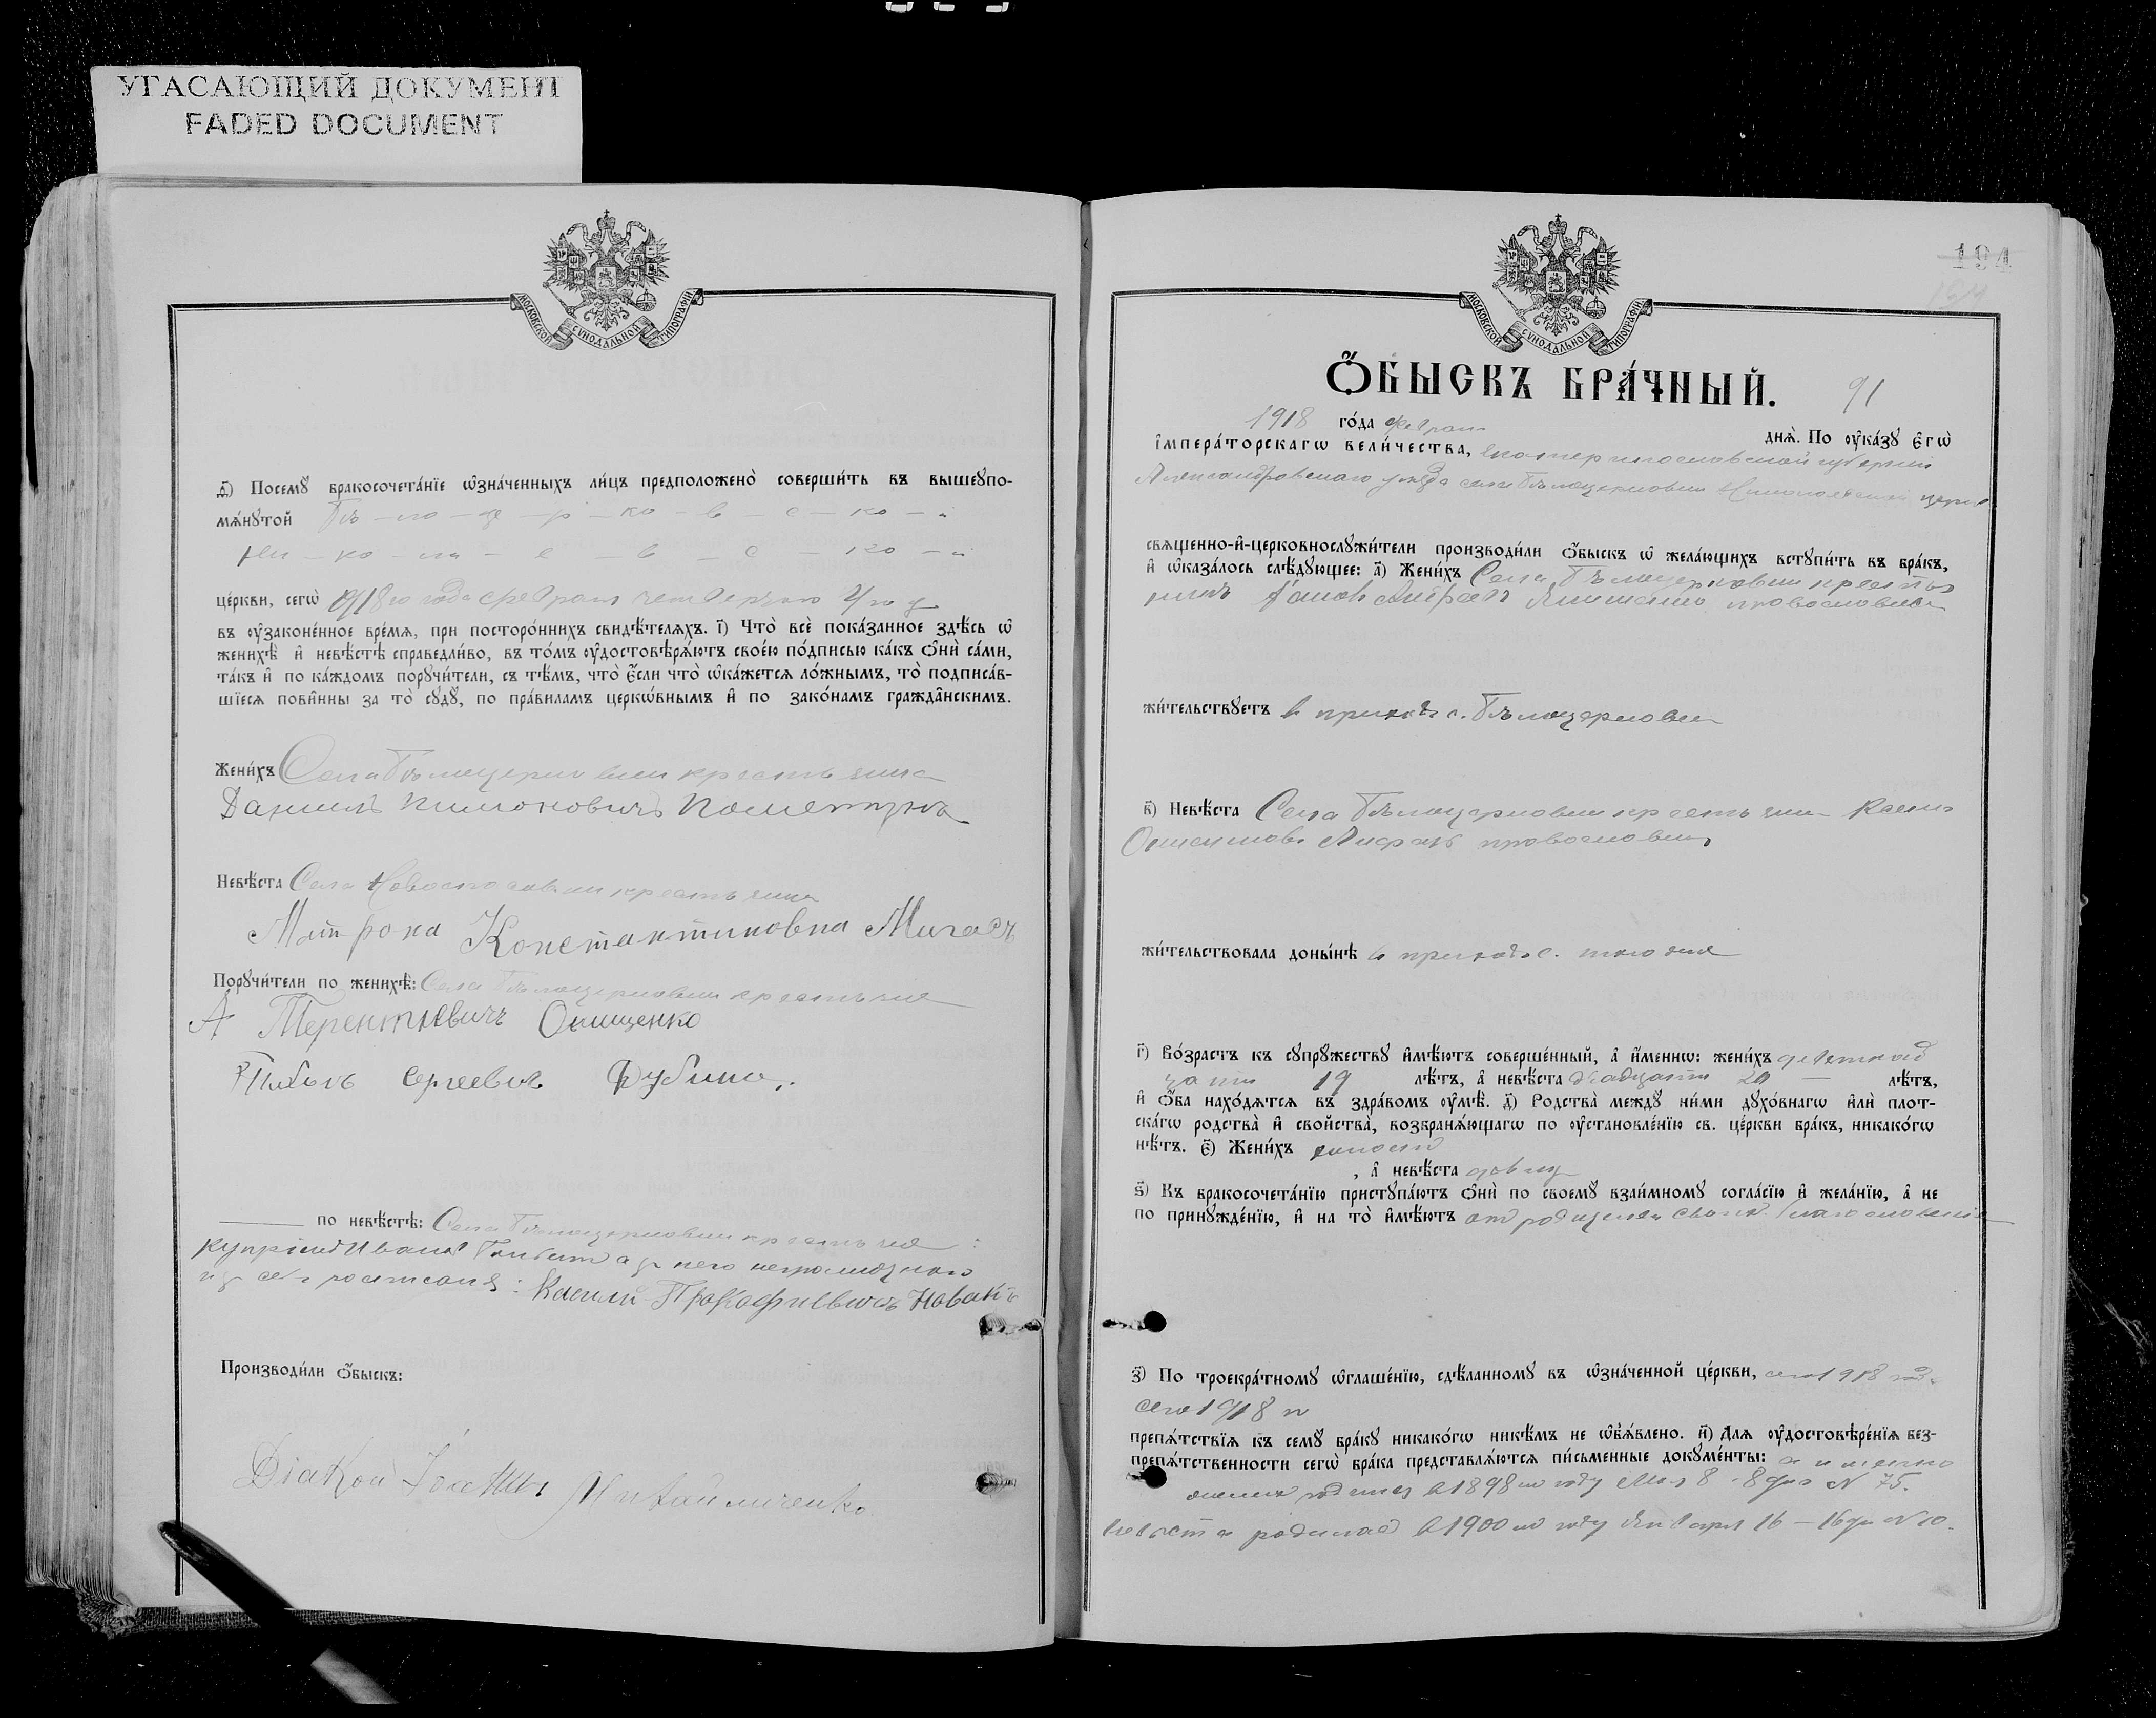 УГАСАЮЩИЙ ДОКУМЕНТ
FADED DOCUMENT
МОСКОВСКОЙ СѴНОДАЛЬНОЙ ТИПОГРАФІИ
д҃) Посемꙋ бракосочета́нїе ѡ҆зна́ченныхъ ли́цъ предположено̀ соверши́ть въ вышеꙋпо-
мѧ́нꙋтой Бѣ – ло – це – р – ко – в – с – ко – й
Ни – ко – ла – е – в – с – ко – й
це́ркви, сегѡ̀ 1918 го года февраля четвертаго 4 го д
въ ᲂу҆законе́нное вре́мѧ, при посторо́ннихъ свидѣ́телѧхъ. і҃) Что̀ всѐ пока́занное здѣ́сь ѡ҆
женихѣ̀ и҆ невѣ́стѣ справедли́во, въ то́мъ ᲂу҆достовѣрѧ́ютъ свое́ю по́дписью ка́къ ѻ҆нѝ са́ми,
та́къ и҆ по ка́ждомъ порꙋчи́тели, съ тѣ́мъ, что̀ є҆́сли что̀ ѡ҆ка́жетсѧ ло́жнымъ, то̀ подписа́в-
шїесѧ пови́нны за то̀ сꙋдꙋ̀, по пра́виламъ церкѡ́внымъ и҆ по зако́намъ гражда̑нскимъ.
Жени́хъ Села Бѣлоцерковки крестьянинъ
Данiилъ Пименовичъ
Невѣ́ста Села Новоспасовки крестьянка
Матрона Константиновна
Порꙋчи́тели по женихѣ̀: Села Бѣлоцерковки крестьяне
А Терентiевичъ Онищенко
Павелъ Сергеевич Дубина.
по невѣ́стѣ: Села Бѣлоцерковки крестьяне :
Василий Прокофиевичъ Новакъ
Производи́ли ѻ҆́быскъ:
Дiаконъ Iоаннъ Михайличенко.
194
МОСКОВСКОЙ СѴНОДАЛЬНОЙ ТИПОГРАФІИ
Ѻ҆́БЫСКЪ БРА́ЧНЫЙ. 91
1918 го́да Февраля днѧ̀. По ᲂу҆ка́зꙋ є҆гѡ̀
і҆мпера́торскагѡ вели́чества, Екатеринославской губернии
Александровскаго уезда села Бѣлоцерковки Николаевской церкв
свѧще́нно-и҆-церковнослꙋжи́тели производи́ли ѻ҆́быскъ ѡ҆ жела́ющихъ встꙋпи́ть въ бра́къ,
и҆ ѡ҆каза́лось слѣ́дꙋющее: а҃) Жени́хъ Села Бѣлоцерковки крестья
православный
жи́тельствꙋетъ в приходѣ с. Бѣлоцерковки
в҃) Невѣ́ста Села Бѣлоцерковки крестьян
православн
жи́тельствовала доны́нѣ в приходѣ с. того же
г҃) Во́зрастъ къ сꙋпрꙋ́жествꙋ и҆мѣ́ютъ соверше́нный, а҆ и҆́меннѡ: жени́хъ деветнад
цати 19 лѣ́тъ, а҆ невѣ́ста двадцати 20 – лѣ́тъ,
и҆ ѻ҆́ба нахо́дѧтсѧ въ здра́вомъ ᲂу҆мѣ̀. д҃) Родства̀ междꙋ̀ ни́ми дꙋхо́внагѡ и҆лѝ плот-
ска́гѡ родства̀ и҆ свойства̀, возбранѧ́ющагѡ по ᲂу҆становле́нїю св. це́ркви бра́къ, никако́гѡ
нѣ́тъ. є҃) Жени́хъ холост
, а҆ невѣ́ста девиц
ѕ҃) Къ бракосочета́нїю пристꙋпа́ютъ ѻ҆нѝ по своемꙋ̀ взаи́мномꙋ согла́сїю и҆ жела́нїю, а҆ не
по принꙋжде́нїю, и҆ на то̀ и҆мѣ́ютъ от родителей своих благословенiе
з҃) По троекра́тномꙋ ѡ҆глаше́нїю, сдѣ́ланномꙋ въ ѡ҆зна́ченной це́ркви, сего 1918 год
сего 1918 г
препѧ́тствїѧ къ семꙋ̀ бра́кꙋ никако́гѡ никѣ́мъ не ѡ҆б̾ѧ́влено. и҃) Длѧ ᲂу҆достовѣре́нїѧ без-
препѧ́тственности сегѡ̀ бра́ка представлѧ́ютсѧ пи́сьменные докꙋме́нты: а именно
жених родился в 1898 м году Мая 8 – 8 дня N 75.
Невѣста родилась в 1900 м году Января 16 – 16 дн N 10.